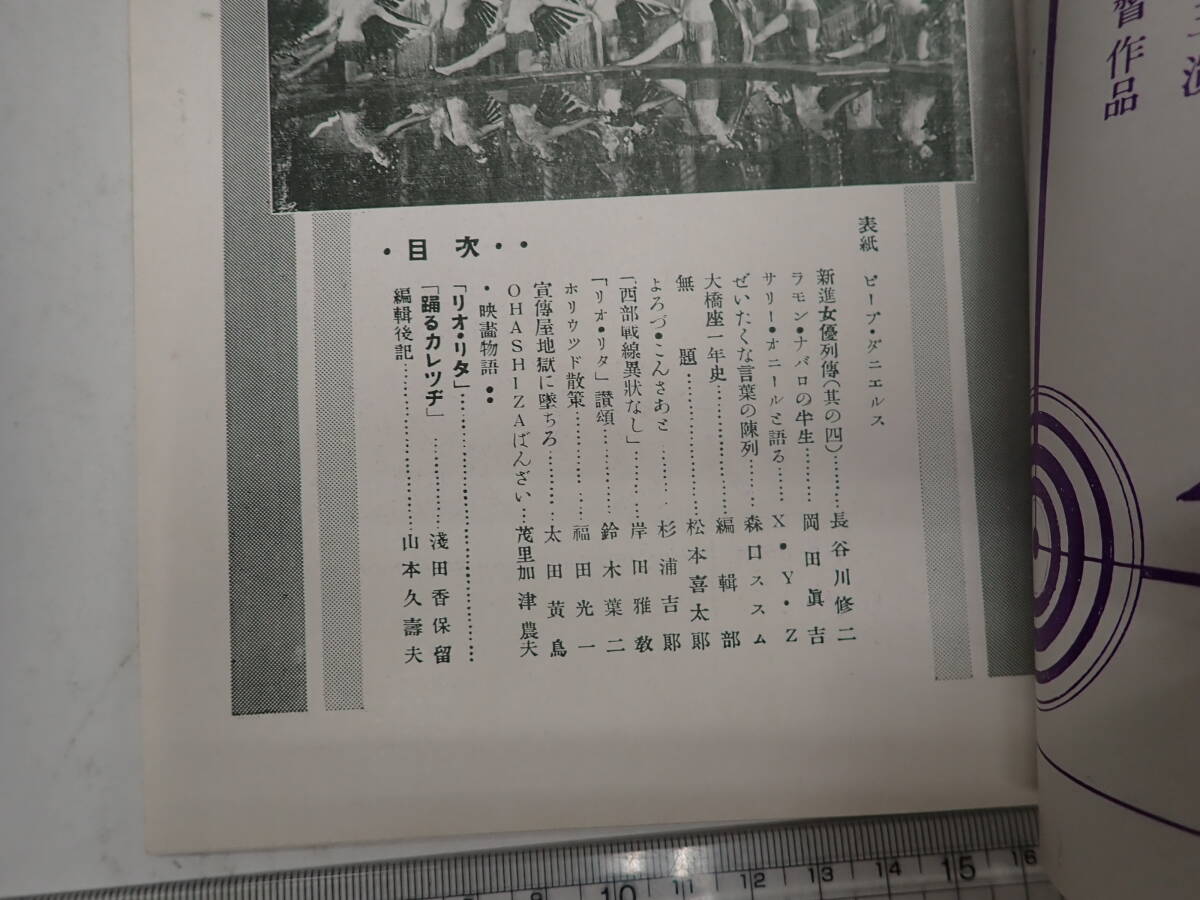 督作品
表紙 ビーブ・ダニエルス
新進女優列傳(其の四)………長谷川修二
ラモン・ナバロの半生………岡田眞吉
サリー・オニールと語る……X・Y・Z
ぜいたくな言葉の陳列……森口ススム
大橋座一年史………………編輯部
無題…………………………松本喜太郎
よろづ・こんさあと………杉浦吉郎
「西部戰線異狀なし」………岸田雅敎
「リオ・リタ」讃頌…………鈴木葉二
ホリウツド散策………………福田光一
宣傳屋地獄に墜ちろ………太田黄鳥
OHASHIZAばんざい…茂里加津農夫
・映畫物語・・
「リオ・リタ」………………………
「踊るカレツヂ」…………淺田香保留
編輯後記……………………山本久壽夫
・目次・・
10 11 12 13 14 15 16